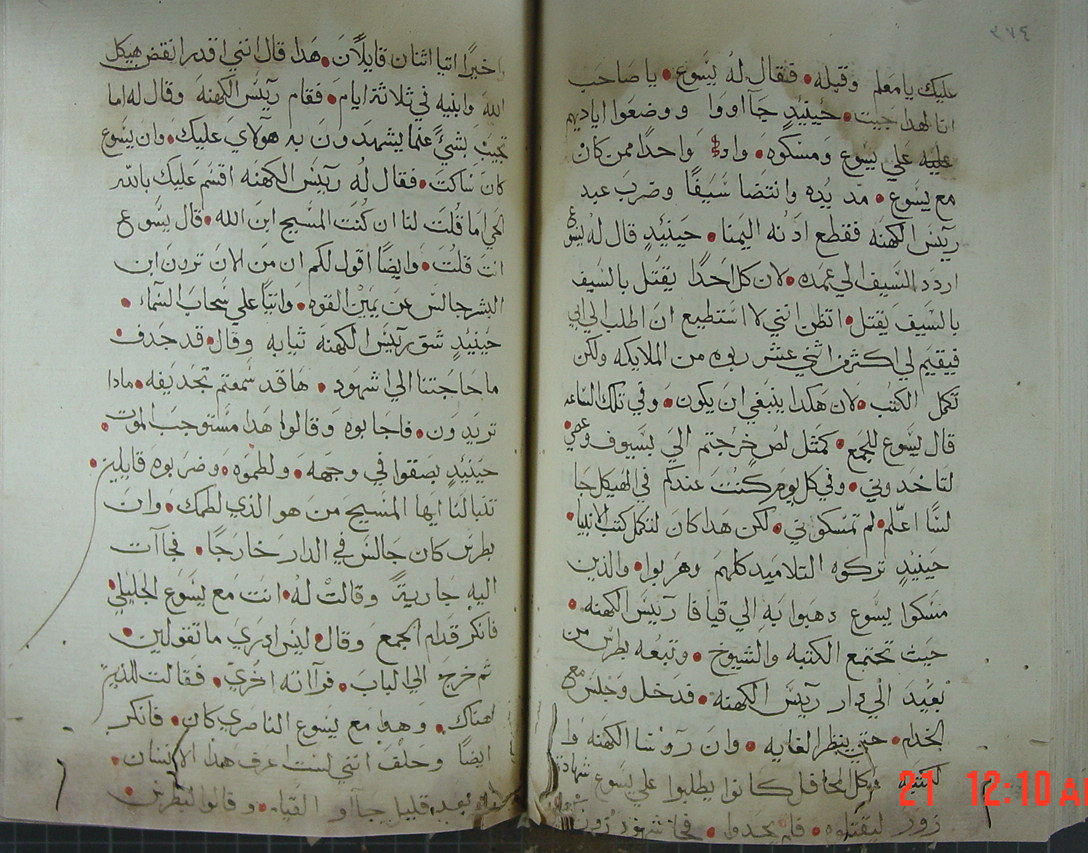 ٣٧٤
عليك يا معلم وقبله • فقال له يسوع • يا صاحب
انا لهدا جيت • حينيدٍ جآ اووا و ووضعوا اياديهم
عليه علي يسوع ومسكوه • واد واحدًا ممن كان
مع يسوع • مد يده وانتضا سيفًا وضرب عبد
رييس الكهنه فقطع ادنه اليمنا • حينيدٍ قال له يسوع
اردد السيف الي غمده • لان كل احدًا يقتل بالسيف
بالسيف يقتل • اتظن انني لا استطيع ان اطلب الي ابي
فيقيم لي اكثر من اثني عشر ربوه من الملايكه ولكن
تكمل الكتب • لان هكدا ينبغي ان يكون • وفي تلك الساعه
قال يسوع للجمع • كمثل لص خرجتم الي بسيوف وعصي
لتاخدوني • وفي كل يوم كنت عندكم في الهيكل جا
لسًا اعلم • لم تمسكوني • لكن هدا كان لتكمل كتب الانبيا
حينيدٍ تركوه التلاميد كلهم وهربوا • والدين
مسكوا يسوع دهبوا به الي قيافا رييس الكهنه •
حيث تجتمع الكتبه والشيوخ • وتبعه بطرس من
بعيد الي دار رييس الكهنه • فدخل وجلس مع
الخدام • حتي ينظر الغايه • وان روسا الكهنه وا
لكتبه وكل المحافل كانوا يطلبوا علي يسوع شهادة
زور ليقتلوه • فلم يجدوا • فجا شهود زور
اخيرًا اتيا اثنان قايلان • هدا قال انني اقدر انقض هيكل
الله وابنيه في ثلاثة ايام • فقام رييس الكهنه وقال له اما
تجيب بشيٍ عما يشهدون به هولاي عليك • وان يسوع
كان ساكت • فقال له رييس الكهنه اقسم عليك بالله
الحي اما قلت لنا ان كنت المسيح ابن الله • قال يسوع
انت قلت • وايضًا اقول لكم ان من الان ترون ابن
البشر جالس عن يمين القوه • واتيًا علي سحاب السمآء •
حينيدٍ شق رييس الكهنه ثيابه وقال • قد جدف
ما حاجتنا الي شهود • ها قد سمعتم تجديفه • مادا
تريدون • فاجابوه وقالوا هدا مستوجب الموت •
حينيدٍ بصقوا في وجهه • ولطموه • وضربوه قايلين •
تنبا لنا ايها المسيح من هو الذي لطمك • وان
بطرس كان جالس في الدار خارجًا • فجاآت
اليه جاريةً وقالت له • انت مع يسوع الجليلي •
فانكر قدام الجمع وقال ليس ادري ما تقولين •
ثم خرج الي الباب • فرآاته اخري • فقالت للدين
هناك • وهوا مع يسوع الناصري كان • فانكر
ايضًا وحلف انني لست اعرف هدا الانسان •
بعد قليل جآاو القيام • وقالوا لبطرس •
21 12:10 AM